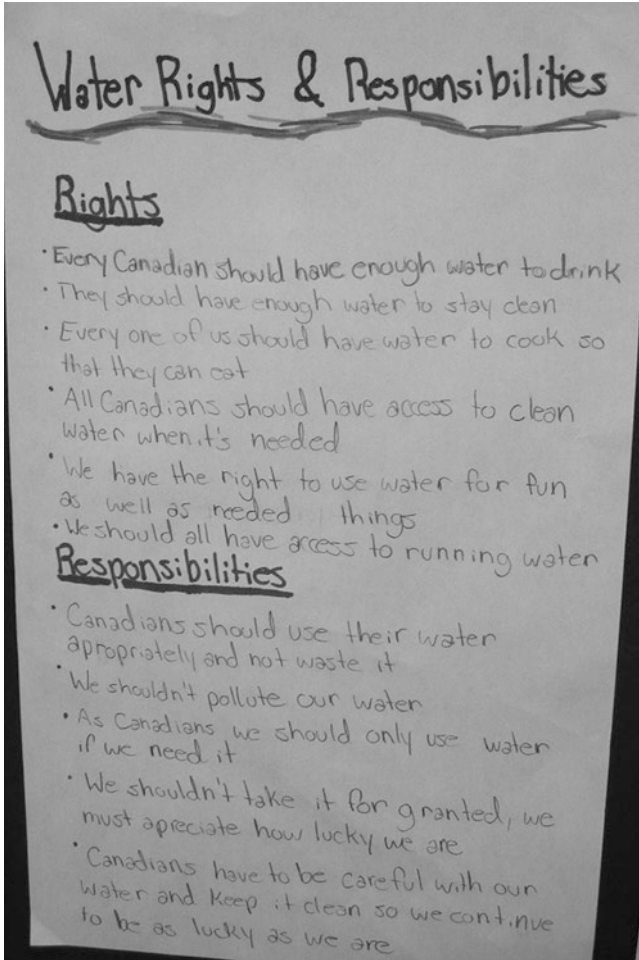 Water Rights & Responsibilities
Rights
· Every Canadian should have enough water to drink
· They should have enough water to stay clean
· Every one of us should have water to cook so
that they can eat
· All Canadians should have access to clean
water when it's needed
· We have the right to use water for fun
as well as needed things
· We should all have access to running water
Responsibilities
· Canadians should use their water
apropriately and not waste it
· We shouldn't pollute our water
· As Canadians we should only use water
if we need it
· We shouldn't take it for granted, we
must apreciate how lucky we are
· Canadians have to be careful with our
water and keep it clean so we continue
to be as lucky as we are